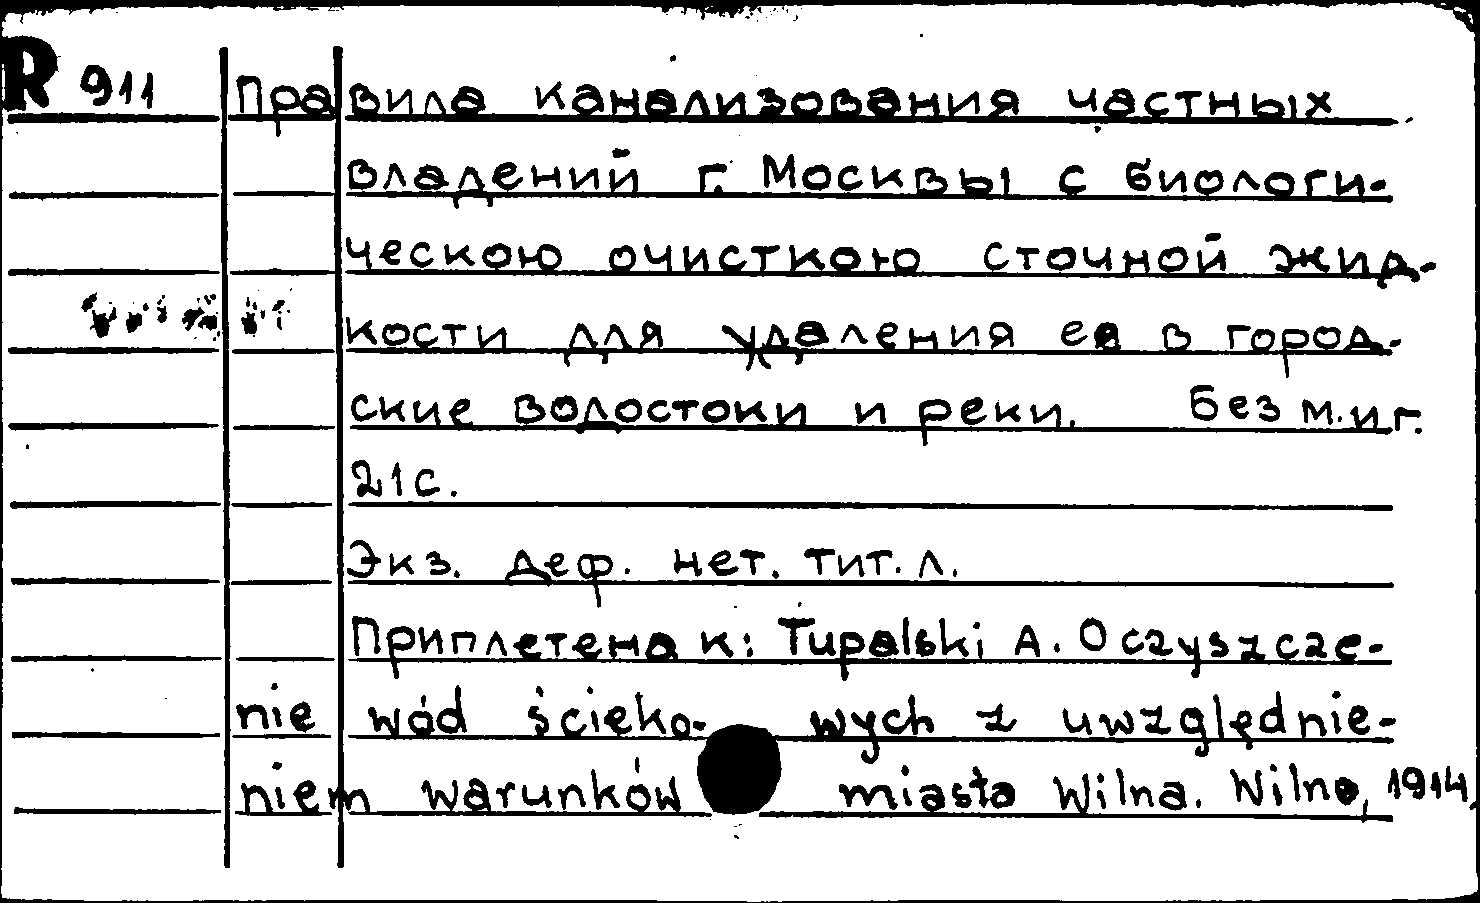 R 911 Правила канализования частных
владений г. Москвы с биологи-
ческою очисткою сточной жид-
кости для удаления ея в город-
ские водостоки и реки. без м. и г.
21 с.
Экз. деф. нет. тит. л.
Приплетена к: Tupalski A. Oczyszcze-
nie wód ścieko- wych z uwzględnie-
niem warunków miasta Wilna. Wilno, 1914.